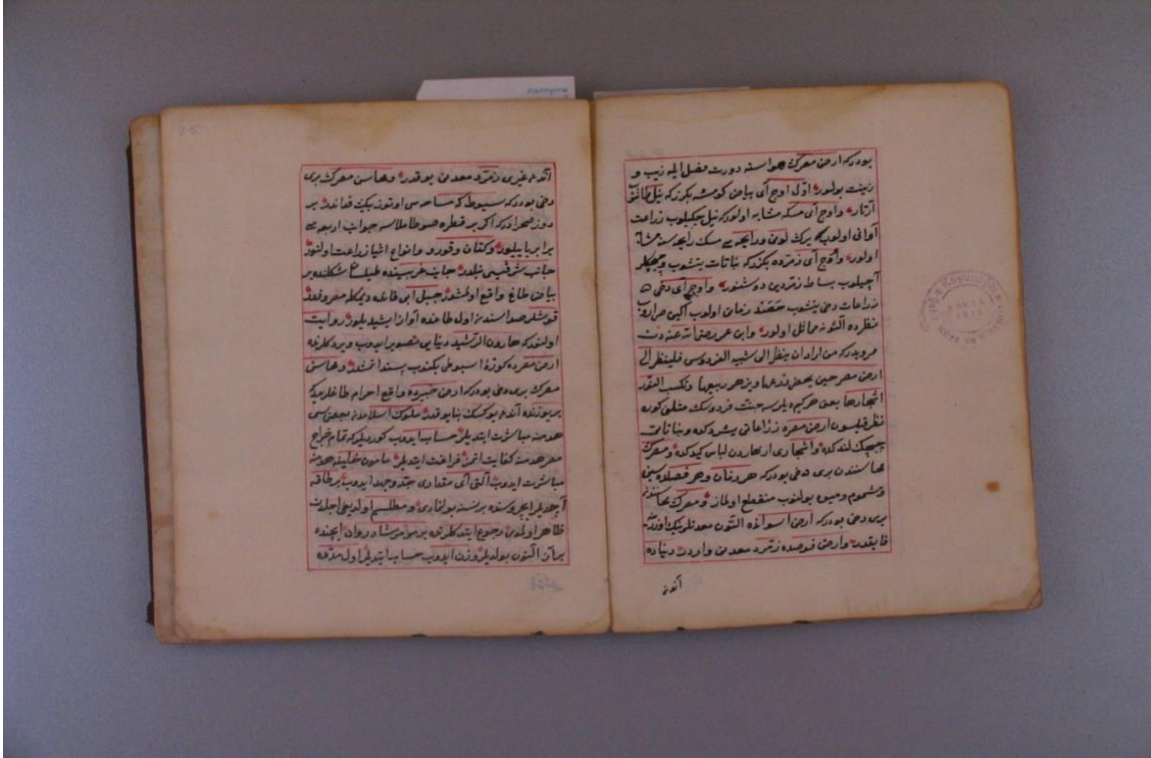 بودرکه ارض مصرک هواسنه دورت فصل ایله زیب و
زینت بولور اول اوچ آی بیاض کومشه بکزرکه نیل طاشقن
آرتار واوچ آی مسکه مشابه اولورکه نیل چکیلوب زراعت
آوانی اولوب یرک لون ورایحه سی مسک رایحه سنه مشابه
اولور واوچ آی زمرده بکزرکه نباتات یتشوب وچیچکلر
آچیلوب بساط زمردین دوشنور واوچ آی دخی
زراعات دخی یتشوب حصد زمان اولوب
نظرده آلتونه مماثل اولور وابن عمر رضی الله عنه دن
مرویدرکه من اراد ان ینظر الی شبیه الفردوس فلینظر الی
ارض مصر حین یخضر زرعها ویزهر ربیعها وتکسب
اشجارها یعنی هرکیم دیلرسه جنت فردوسک مثلن کوره
نظر قیلسون ارض مصره زراعاتی یشردکده ونباتاتی
چیچکلندکده واشجاری ازهاردن لباس کیدکده ومصرک
محاسندن بری دخی بودرکه هر زمان وهر فصلده
ومشموم ومیوه بولنوب منقطع اولماز ومصرک محاسندن
بری دخی بودرکه ارض اسوانده التون معدنلرینک اوزرینه
فایقدر وارض قوصده زمرد معدنی واردر دنیاده
آندن
آندن غیری زمرد معدنی یوقدر ومحاسن مصرک بری
دخی بودرکه سیوط که مساحه سی اوتوز بیک فداندر بر
دوز صحرادرکه اکر بر قطره صو طاملاسه جوانب اربعه یه
برابر یاییلور وکتان وانواع اشیا زراعت اولنور
جانب شرقیسی نیلدر جانب غربیسنده طیلسان شکلنده بر
بیاض طاغ واقع اولمشدر جبل ابی فائده دیمکله معروفدر
قوشلر صداسندن اول طاغده آواز ایشیدیلور روایت
اولنورکه هارون الرشید دنیایی تصویر ایدوب ویردکلرنده
ارض مصرده کورۀ اسیوطی بکنوب پسند اتمشدر ومحاسن
مصرک بری دخی بودرکه ارض جیزه ده واقع اهرام طاغلریدرکه
یر یوزنده آندن یوکسک بنا یوقدر ملوک اسلامدن بعضیسی
هدمنه مباشرت ایتدیلر حساب ایدوب کوردیلرکه تمام خراج
مصر هدمنه کفایت اتمز فراغت ایتدیلر مامون خلیفه هدمنه
مباشرت ایدوب آلتی آی مقداری جد وجهد ایدوب بر طاقه
آچدیلر ایچروسنده برنسنه بولنمادی ومطلسم اولدیغی اجلدن
ظاهر اولمدی رجوع ایتدکلرنده بر مرمر شادروان ایچنده
بر آز آلتون بولدیلر وزن ایدوب حساب ایتدیلر اول